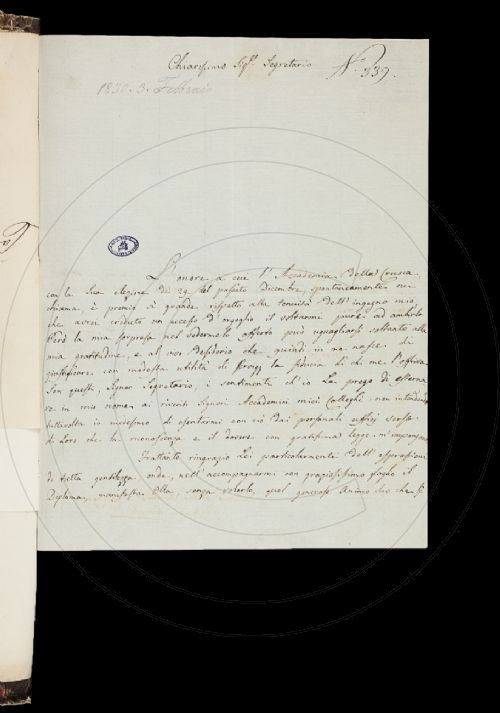 Chiarissimo Sig.r Segretario
N.º 339.
1830. 3. Febbraio
L'onore a cui l'Accademia della Crusca
con la sua elezione de' 29 del passato Dicembre, spontaneamente mi
chiama, è premio sì grande rispetto alla tenuità dell'ingegno mio,
che avrei creduto un eccesso d'orgoglio il soltanto pure ad ambirlo.
Però la mia sorpresa nel vedermelo offerto può uguagliarsi soltanto alla
mia gratitudine, e al vivo desiderio che quindi in me nasce di
giustificare con modesta utilità di la fiducia di chi me l'offriva.
Son questi, Signor Segretario, i sentimenti ch'io La prego di esterna
re in mio nome a' Signori Accademici miei Colleghi, non intendendo
tuttavolta io medesimo di esentarmi con ciò dai personali uffizj verso
di Loro che la riconoscenza e il dovere con gratissima legge m'impongono
Frattanto ringrazio Lei particolarmente dell'espressioni
di tutta gentilezza onde, nell'accompagnarmi con pregiatissimo foglio il
Diploma, manifesta Ella, senza volerlo, quel generoso Animo Suo che si